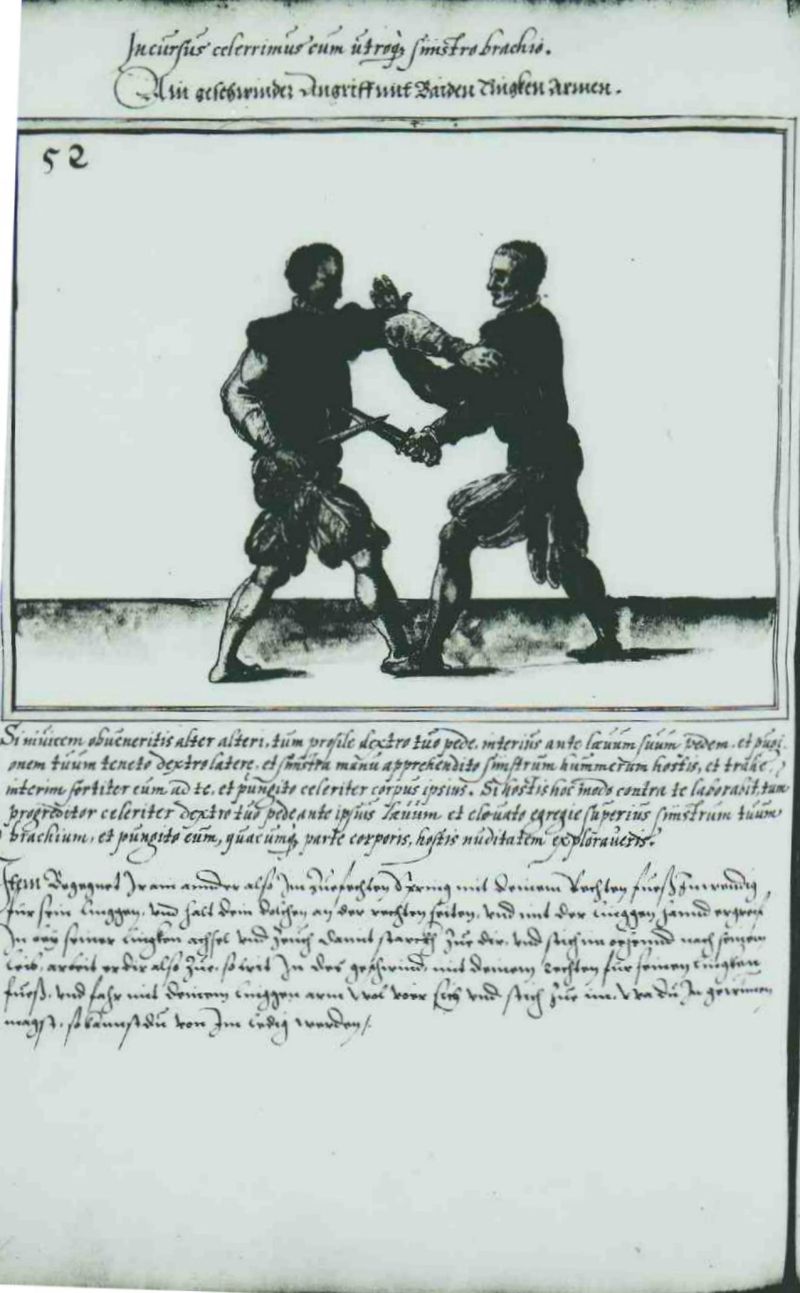 Incursus celerrimus cum utroq̃ꝫ sinistro brachio.
Ain geschwinder Angriff mit Baiden Lingken Armen.
52
Si invicem obveneritis alter alteri, tum prosile dextro tuo pede, interius ante laevum suum pedem, et pugi,
onem tuum teneto dextro latere, et sinistra manu apprehendito sinistrum hummerum hostis, et trahe
interim fortiter eum ad te, et pungito celeriter corpus ipsius. Si hostis hoc modo contra te laborabit, tum
progreditor celeriter dextro tuo pede ante ipsius laevum et elevato egregie superius sinistrum tuum
brachium, et pungito eum, quacumq̃ꝫ parte corporis, hostis nuditatem exploraveris.
Item Begegnet Ir ain annder also Im Zuefechten Spring mit deinem Rechten fueß Inwendig
für sein Linggen, vnd halt dein dolchen an der rechten seiten, vnd mit der Linggen hannd ergreif
In bey seiner Lingken achsel vnd Zeuch damit starckh Zue dir, vnd stich im nach seinem
Leib, arbeit er dir also Zue, so trit In des geschwind mit deinem rechten für seinen Lingken
fueß, vnd fahr mit deinem Linggen arm wol vber sich vnd stich Zue im, wa du In gewinnen
magst, so kannst du von Im Ledig werden/.